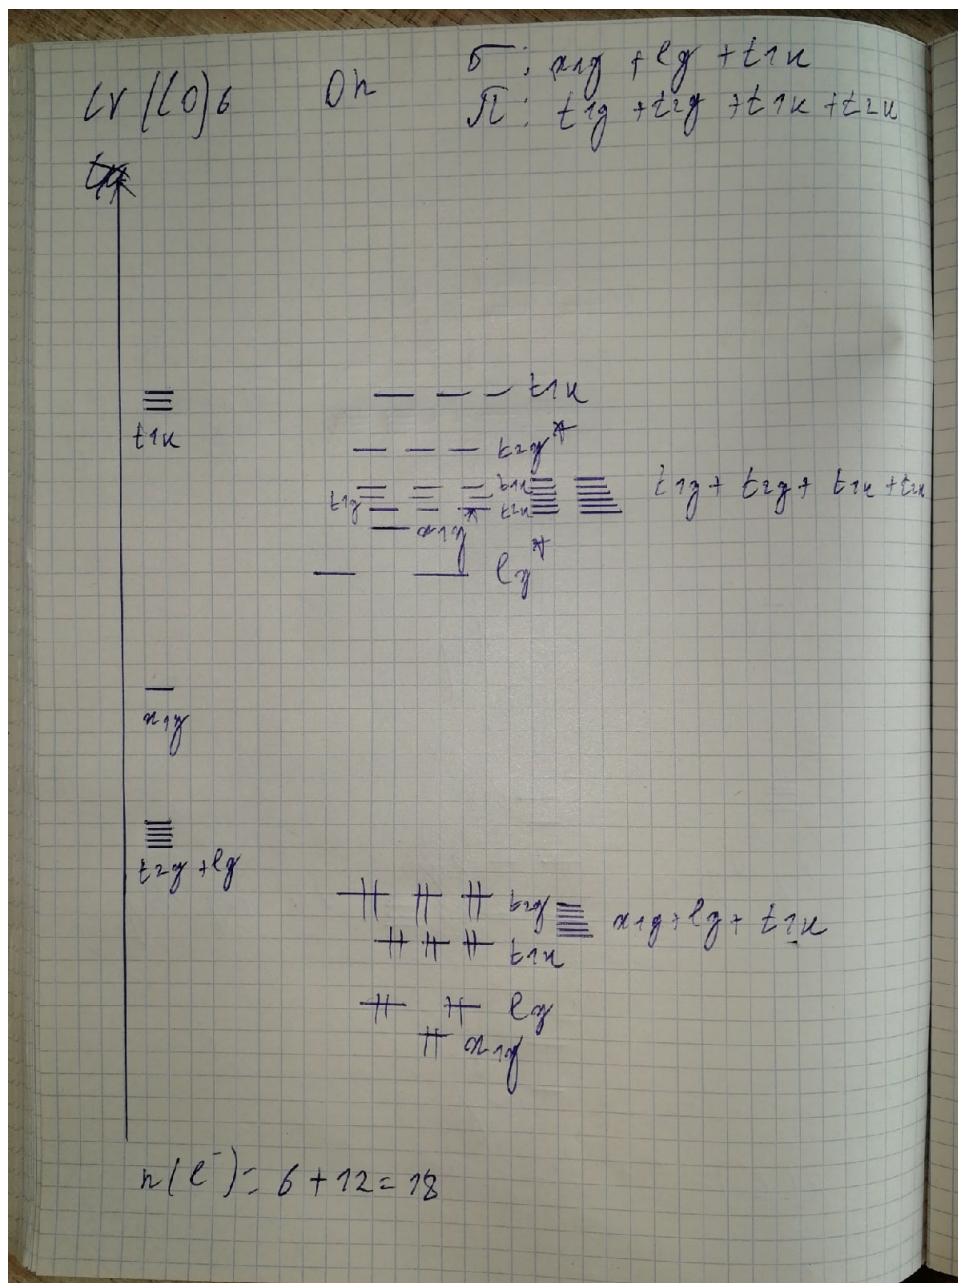 Cr(CO)6 Oh σ: a1g + eg + t1u
π: t1g + t2g + t1u + t2u
t1u
t1u
t2g*
t1u
t1g
t1g + t2g + t1u + t2u
t2u
a1g*
eg*
a1g
t2g + eg
t2g
a1g + eg + t1u
t1u
eg
a1g
n(e⁻) = 6 + 12 = 18